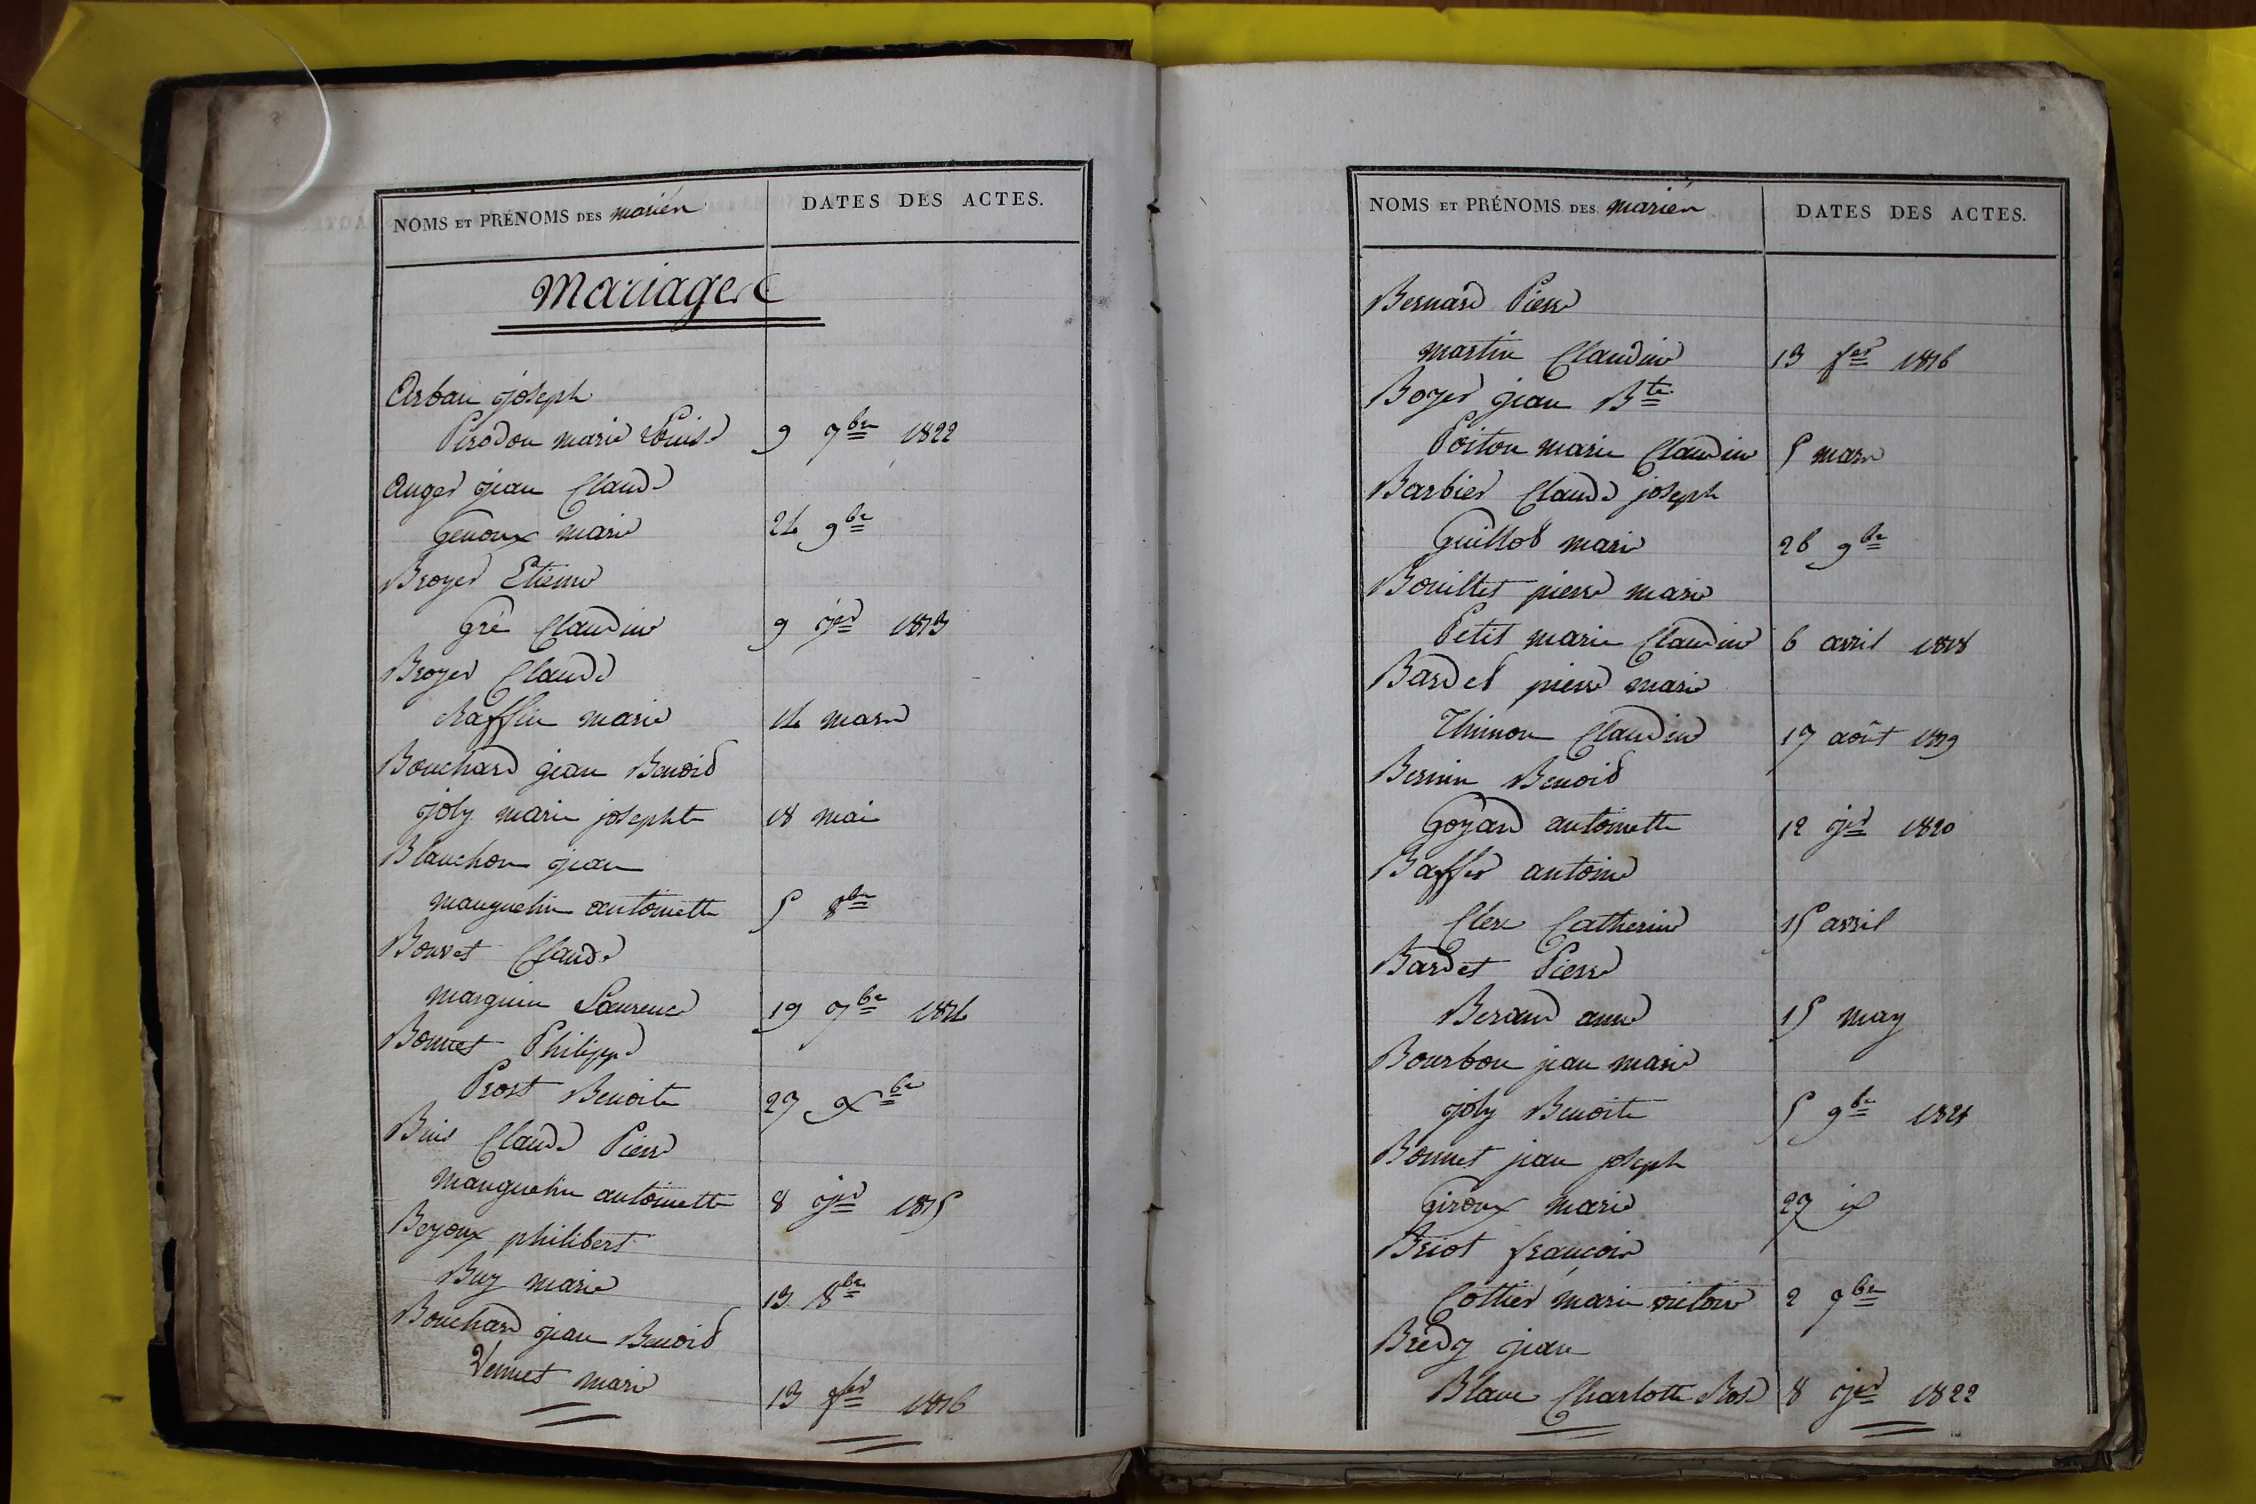 NOMS ET PRÉNOMS DES mariés DATES DES ACTES.
Mariages
Arban joseph
Pirodon marie Louise 9 7bre 1822
Auger jean Claude
Genoux marie 24 9bre
Broyer Etienne
Gré Claudine 9 jer 1813
Broyer Claude
Raffin marie 14 mars
Bouchard jean Benoid
joly marie josephte 18 mai
Blanchon jean
manguelin antoinette 5 8bre
Bouvet Claude
marguin Laurence 19 7bre 1814
Bonnet Philippe
Prost Benoite 27 Xbre
Buis Claude Pierre
manguelin antoinette 8 jer 1815
Beyoux philibert
Buy marie 13 8bre
Bouchard jean Benoid
Vennet marie 13 fer 1816
NOMS ET PRÉNOMS DES mariés DATES DES ACTES.
Bernard Pierre
martin Claudine 13 fer 1816
Boyer jean Bte
Poiton marie Claudine 5 mars
Barbier Claude joseph
Guillod marie 26 9bre
Bouillet pierre marie
Petit marie Claudine 6 avril 1818
Bardel pierre marie
Thimon Claudine 17 août 1819
Bernin Benoid
Goyard antoinette 12 jer 1820
Baffer antoine
Clerc Catherine 15 avril
Bardet Pierre
Beraud anne 15 may
Bourbon jean marie
joly Benoite 5 9bre 1821
Bonnet jean joseph
Giroux marie 27 ix
Briot françois
Cottier marie victoire 2 7bre
Bredy jean
Blanc Charlotte Rose 8 jer 1822